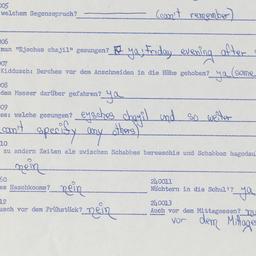 005
welchem Segensspruch? (can't remember)
006
man "Ejsches chajil" gesungen? ja; Friday evening after
007
Kiddusch: Berches vor dem Anschneiden in die Höhe gehoben? ja (some
008
dem Messer darüber gefahren? ja
009
es: welche gesungen? eysches chajil und so weiter
can't specify any others)
10
zu andern Zeiten als zwischen Schabbes bereeschis und Schabbes hagodeul
nein
60
es Haschkoome? nein
240011
Nüchtern in die Schul'? ja
12
usch vor dem Frühstück? nein
240013
Auch vor dem Mittagessen?
vor dem Mittage